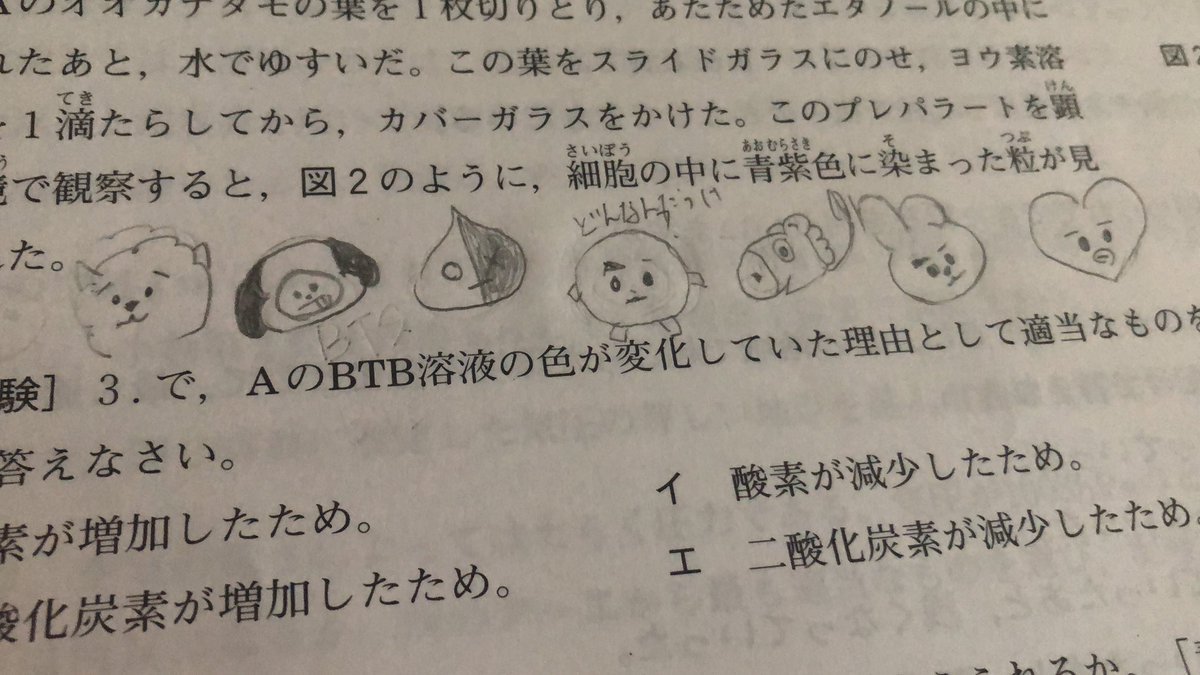 Aのオオカナダモの葉を1枚切りとり，あたためたエタノールの中に
れたあと，水でゆすいだ。この葉をスライドガラスにのせ，ヨウ素溶
図2
1滴たらしてから，カバーガラスをかけた。このプレパラートを顕
で観察すると，図2のように，細胞の中に青紫色に染まった粒が見
た。
BTS
験］3．で，AのBTB溶液の色が変化していた理由として適当なものを
答えなさい。
素が増加したため。
イ　酸素が減少したため。
酸化炭素が増加したため。
エ　二酸化炭素が減少したため。
られるか。